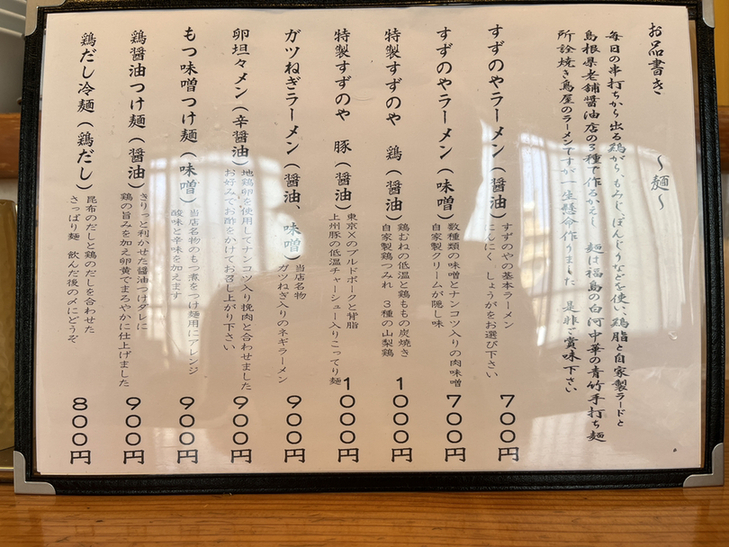 お品書き
〜麺〜
毎日の串打ちから出る鶏がら、もみじ、ぼんじりなどを使い、鶏脂と自家製ラードと
島根県老舗醤油店の3種で作るかえし 麺は福島の白河中華の青竹手打ち麺
所詮焼き鳥屋のラーメンですが一生懸命作りました 是非ご賞味下さい
すずのやラーメン(醤油)
すずのやの基本ラーメン
にんにく しょうがをお選び下さい
700円
すずのやラーメン(味噌)
数種類の味噌とナンコツ入りの肉味噌
自家製クリームが隠し味
700円
特製すずのや 鶏(醤油)
鶏むねの低温と鶏ももの炭焼き
自家製鶏つみれ 3種の山梨鶏
1000円
特製すずのや 豚(醤油)
東京Xのブルドポークと背脂
上州豚の低温チャーシュー入りこってり麺
1000円
ガツねぎラーメン(醤油、味噌)
当店名物
ガツねぎ入りのネギラーメン
900円
卵坦々メン(辛醤油)
地鶏卵を使用してナンコツ入り挽肉と合わせました
お好みでお酢をかけてお召し上がり下さい
900円
もつ味噌つけ麺(味噌)
当店名物のもつ煮をつけ麺用にアレンジ
酸味と辛味を加えます
900円
鶏醤油つけ麺(醤油)
きりっと利かせた醤油つけダレに
鶏の旨みを加え卵黄でまろやかに仕上げました
900円
鶏だし冷麺(鶏だし)
昆布のだしと鶏のだしを合わせた
さっぱり麺 飲んだ後の〆にどうぞ
800円